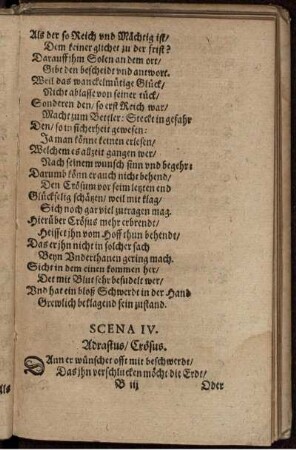 Als der so Reich vnd Mächtig ist/
Dem keiner glichet zu der frist?
Darauff jhm Solen an dem ort/
Gibt den bescheidt vnd antwort.
Weil das wanckelmütige Glück/
Nicht ablasse von seiner tück/
Sonderen den/ so erst Reich war/
Macht zum Bettler: Steckt in gefahr
Den/ so in sicherheit gewesen:
Ja man könne keinen erlesen/
Welchem es allzeit gangen wer/
Nach seinem wunsch sinn vnd begehr:
Darumb könn er auch nicht behend/
Den Crösum vor seim letzten end
Glückselig schätzen/ weil mit klag/
Sich noch gar viel zutragen mag.
Hierüber Crösus mehr erbrendt/
Heisset jhn vom Hoff thun behendt/
Das er jhn nicht in solcher sach
Beyn Vnderthanen gering mach.
Sicht in dem einen kommen her/
Der mit Blut sehr besudelt wer/
Vnd hat ein bloß Schwerdt in der Hand
Grewlich beklagend sein zustand.
SCENA IV.
Adrastus/ Crösus.
DAnn er wünschet offt mit beschwerde/
Das jhn verschlucken möcht die Erdt/
B iij Oder